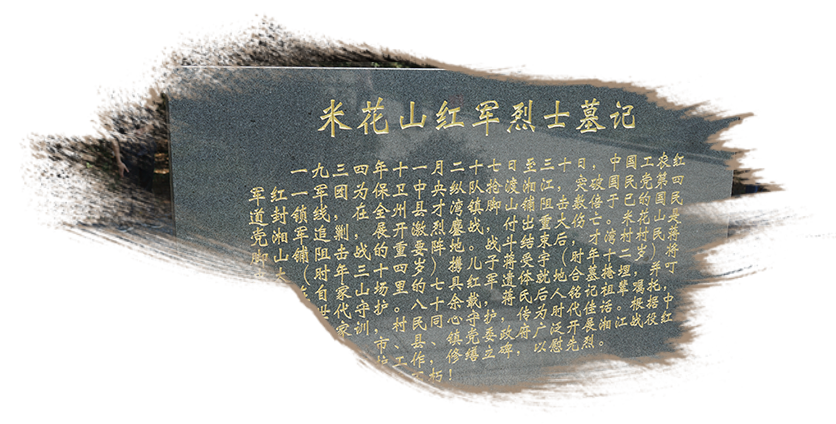 米花山红军烈士墓记
一九三四年十一月二十七日至三十日,中国工农红
军一军团为保卫中央纵队抢渡湘江,突破国民党第四
道封锁线,在全州县才湾镇脚山铺阻击数倍于己的国民
党湘军追剿,展开激烈鏖战。付出重大伤亡。米花山是
脚山铺阻击战的重要阵地,战斗结束后,才湾村民蒋
时年三十四岁)携儿子蒋受就(时年十二岁)、蒋
自家山场里的八具红军遗体就地合墓掩埋,并叮
世代守护七十余载,蒋氏后人铭记祖辈嘱托,
家训,村民同心守护,传为时代佳话。根据中
市、县、镇党委政府广泛开展湘江战役红
护工作,修缮立碑,以慰先烈。
朽!